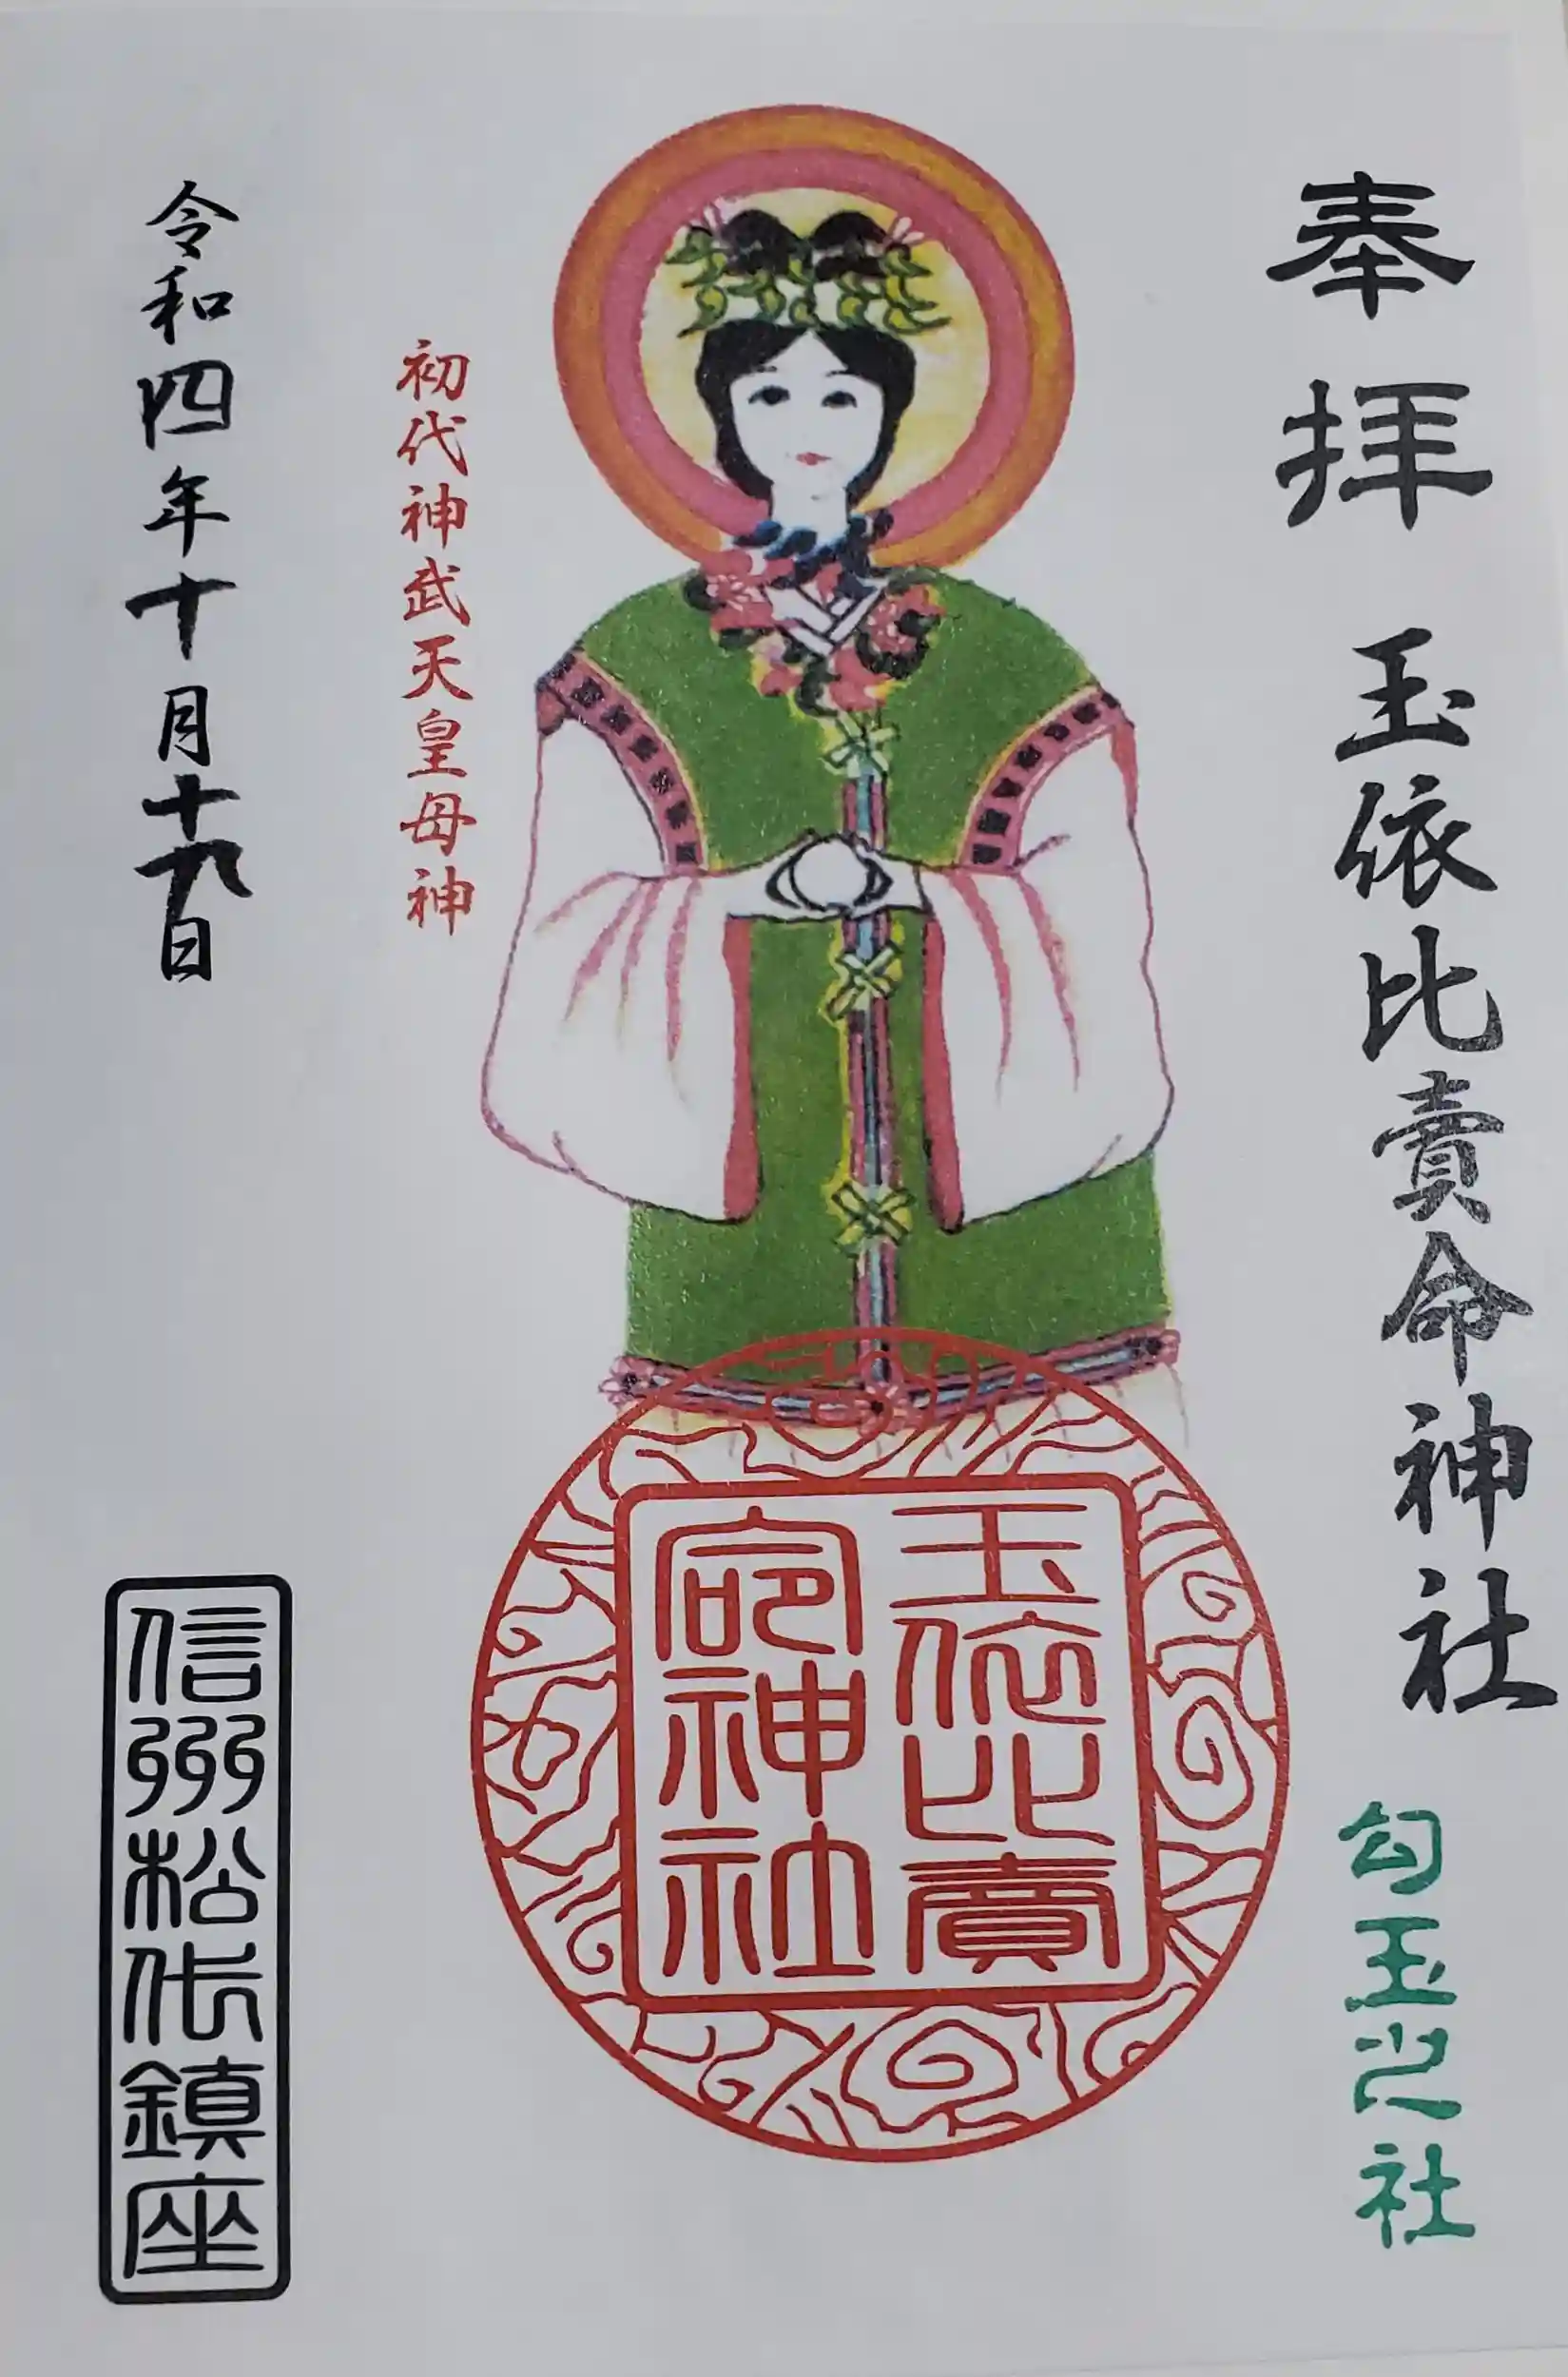 奉拝
玉依比賣命神社
勾玉之社
玉依比賣
命神社
初代神武天皇母神
令和四年十月十九日
信州松代鎮座